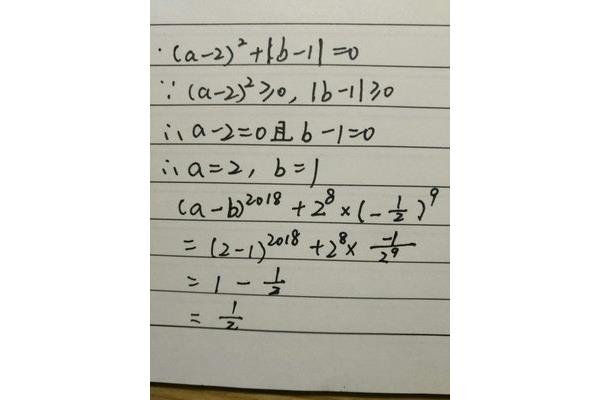 · (a-2)²+|b-1|=0
∵ (a-2)²≥0, |b-1|≥0
∴ a-2=0且b-1=0
∴ a=2, b=1
(a-b)²⁰¹⁸+2⁸×(-1/2)⁹
=(2-1)²⁰¹⁸+2⁸×-1/2⁹
=1-1/2
=1/2